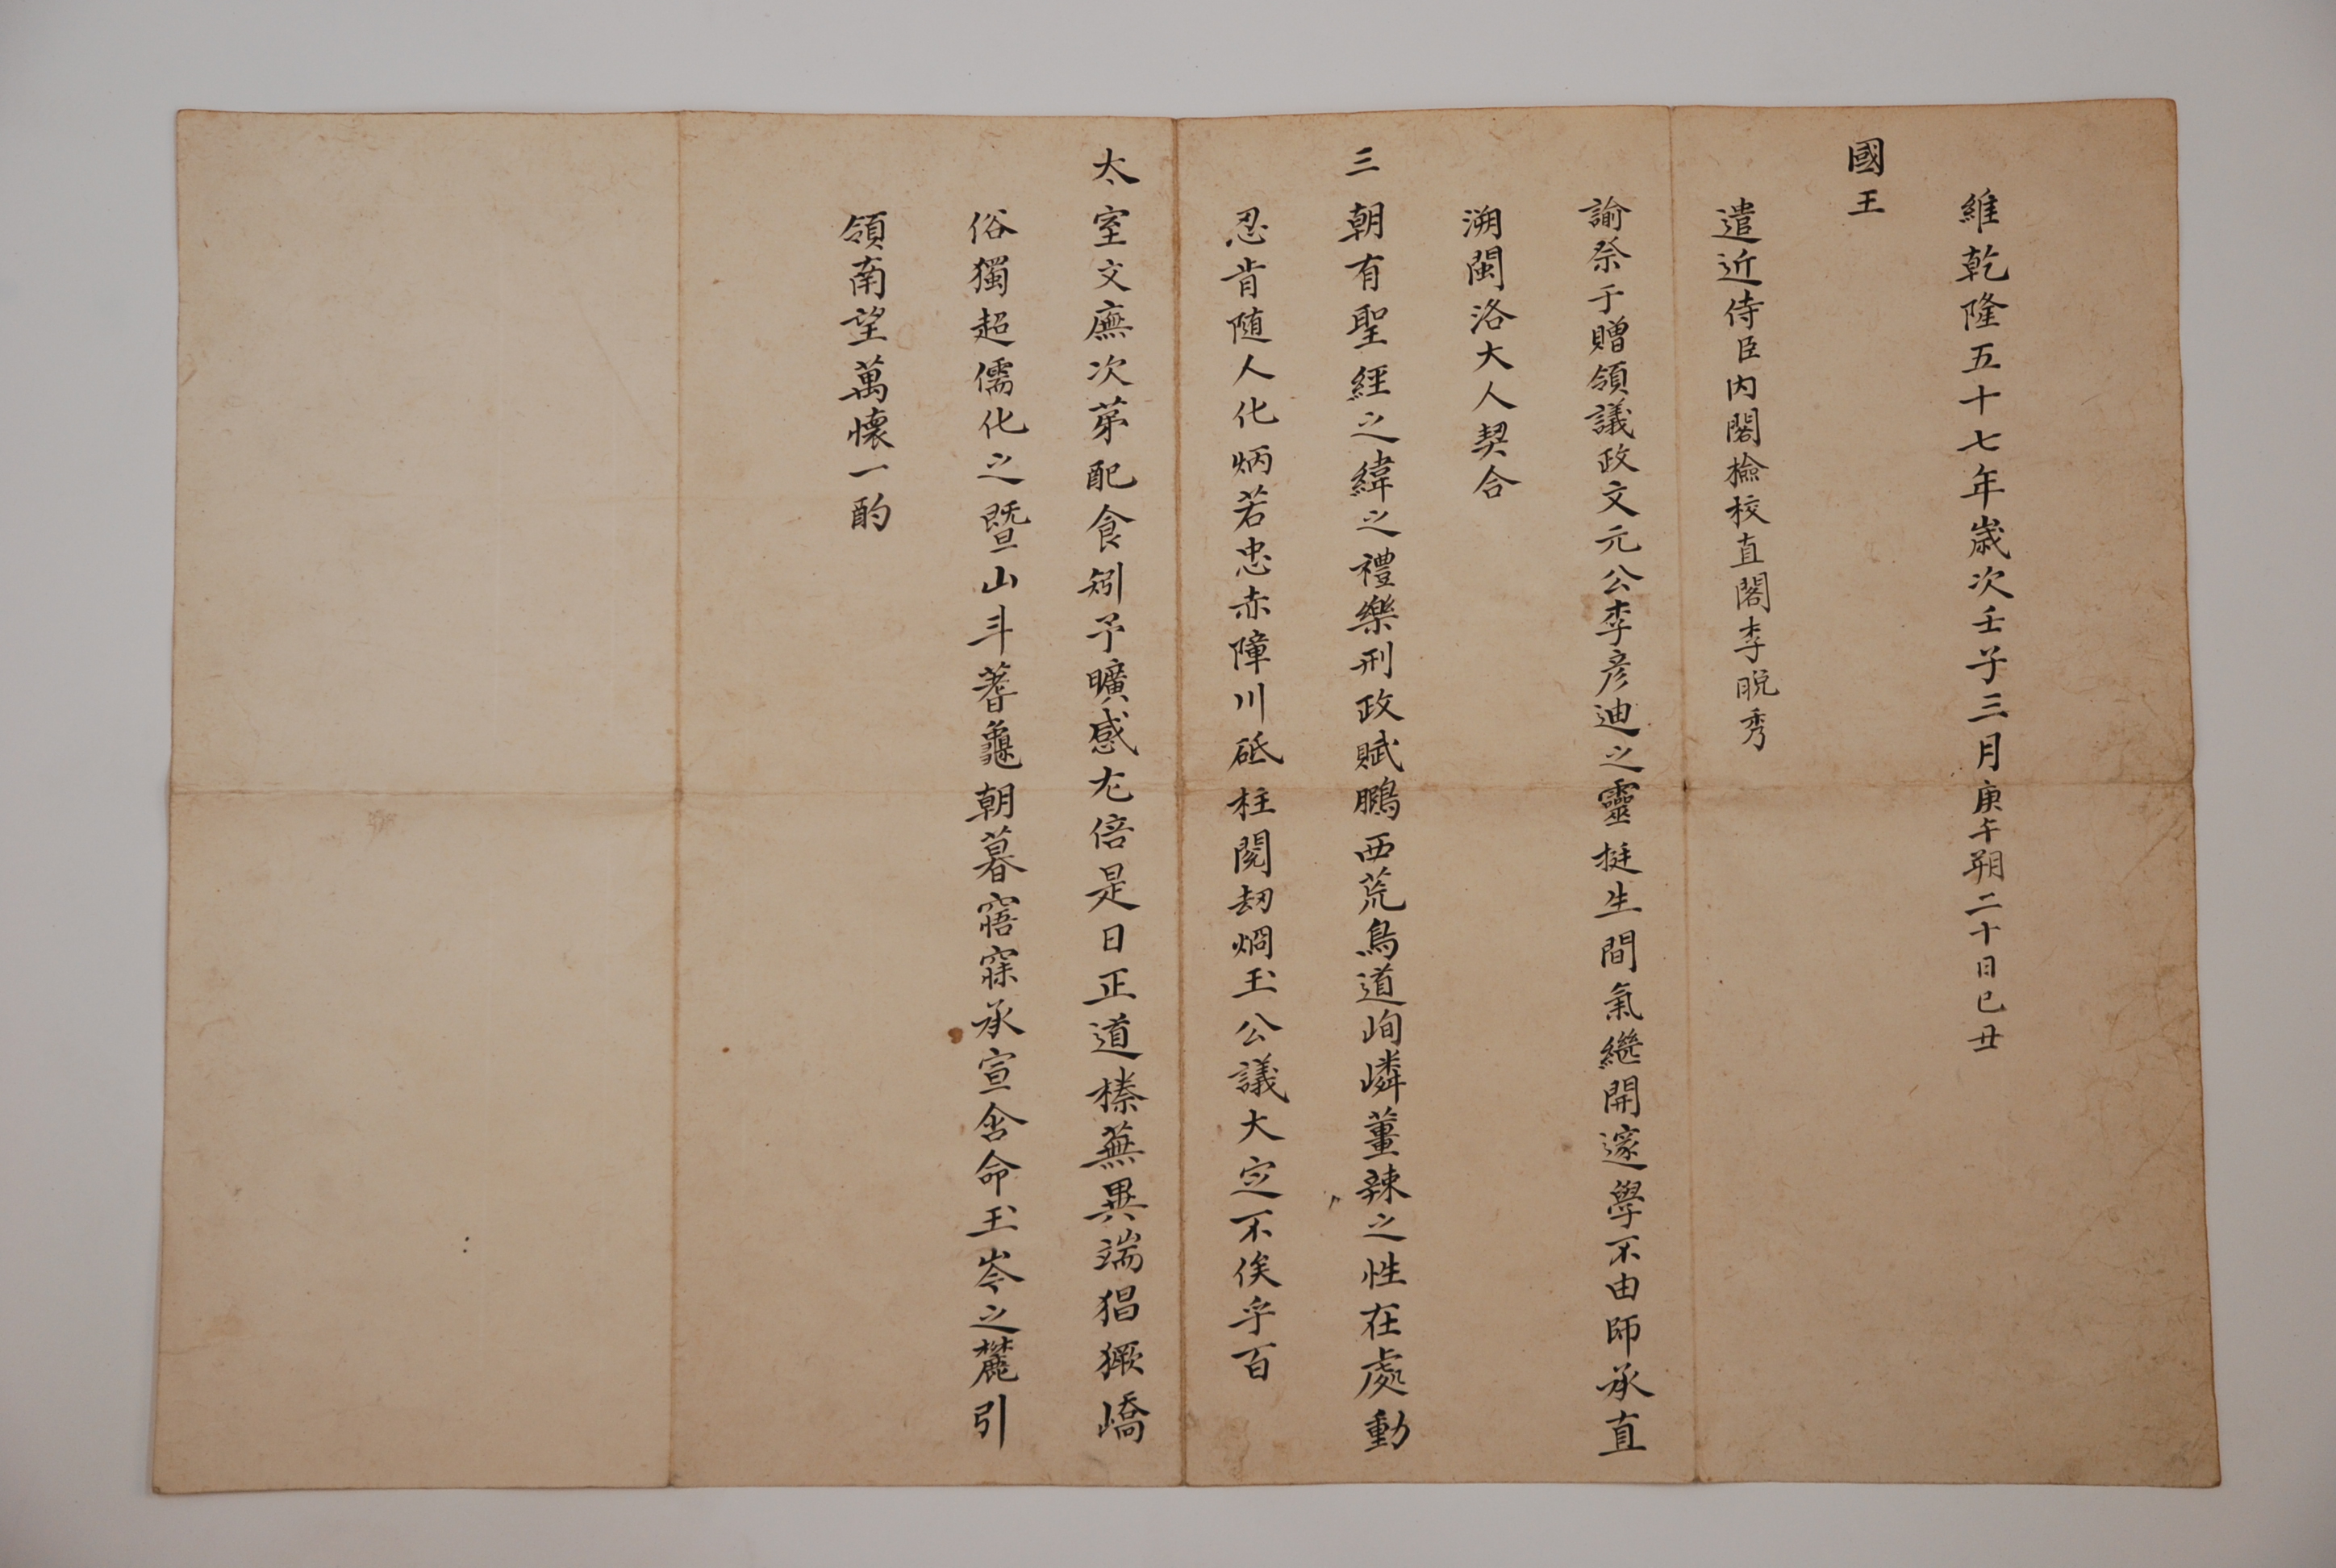 維乾隆五十七年歲次壬子三月庚午朔二十日己丑
國王
遣近侍臣內閣檢校直閣李晩秀
諭祭于贈領議政文元公李彦迪之靈挺生間氣繼開邃學不由師承直
溯閩洛大人契合
三朝有聖經之緯之禮樂刑政賦鵩西荒鳥道峋嶙薑辣之性在處動
忍肯随人化炳若忠赤障川砥柱閱劫烱玉公議大定不俟乎百
太室文廡次苐配食矧予曠感尤倍是日正道榛蕪異端猖獗嶠
俗獨超儒化之曁山斗蓍龜朝暮寤寐承宣舍命玉岑之麓引
領南望萬懷一酌